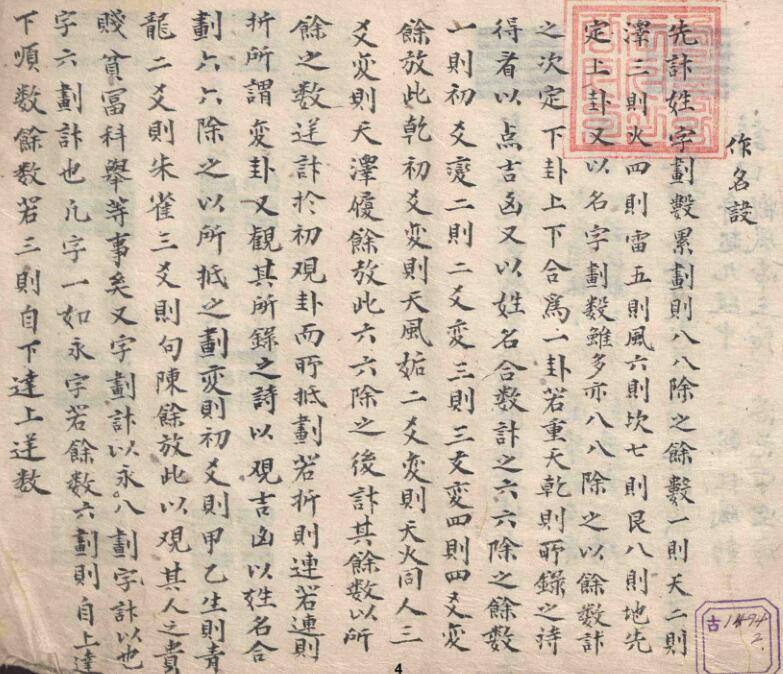 作名設
先計姓字劃數累劃則八八除之餘數一則天二則
澤三則火四則雷五則風六則坎七則艮八則地先
定上卦又以名字劃數雖多亦八八除之以餘數計
之次定下卦上下合爲一卦若重天乾則所錄之詩
得看以点吉凶又以姓名合數計之六六除之餘數
一則初爻變二則二爻変三則三爻変四則四爻変
餘放此乾初爻変則天風姤二爻変則天火同人三
爻変則天澤履餘放此六六除之後計其餘數以所
餘之数逆計於初观卦而所抵劃若折則連若連則
折所謂変卦又觀其所錄之詩以观吉凶以姓名合
劃六六除之以所抵之劃変則初爻則甲乙生則青
龍二爻則朱雀三爻則句陳餘放此以观其人之貴
賤貧冨科舉等事矣又字劃計以永八劃字計以也
字六劃計也凡字一如永字若餘数六劃則自上達
下順数餘数若三則自下達上逆数
古1494
2.
4